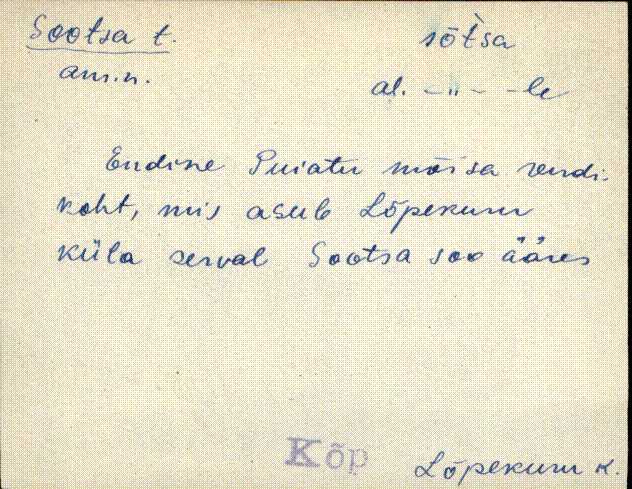 Sootsa t. sōt̀sa
am.n. al. -"- -le
Endine Puiatu mõisa rendi-
koht, mis asub Lõpekunu
küla serval Sootsa soo ääres
Kõp Lõpekunu k.